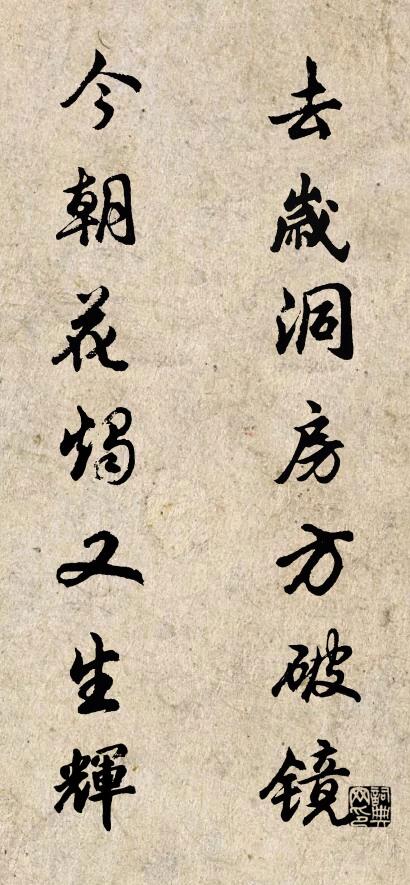 去歲洞房方破镜
今朝花燭又生輝
詞典网印